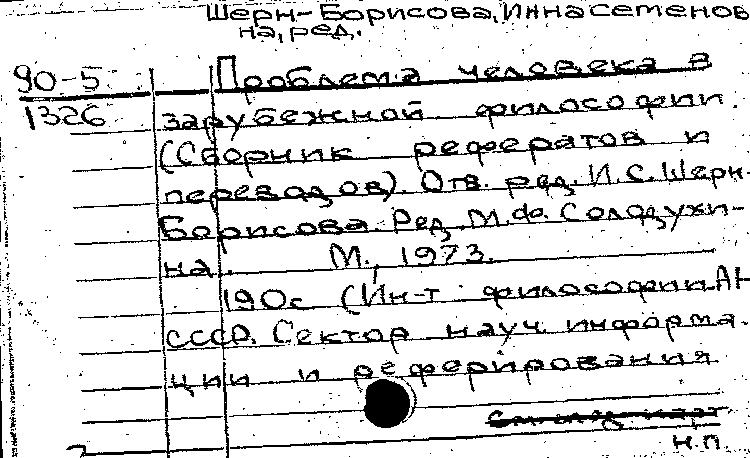 Шерн-Борисова, Инна Семенов
на, ред.
90-5 Проблема человека в
1326 зарубежной философии.
(Сборник рефератов и
переводов). Отв. ред. И.С. Шерн-
Борисова. Ред. М.Ф. Солодухи-
на. М., 1973.
190с (Ин-т философии АН
СССР. Сектор науч. информа-
ции и реферирования
н.п.